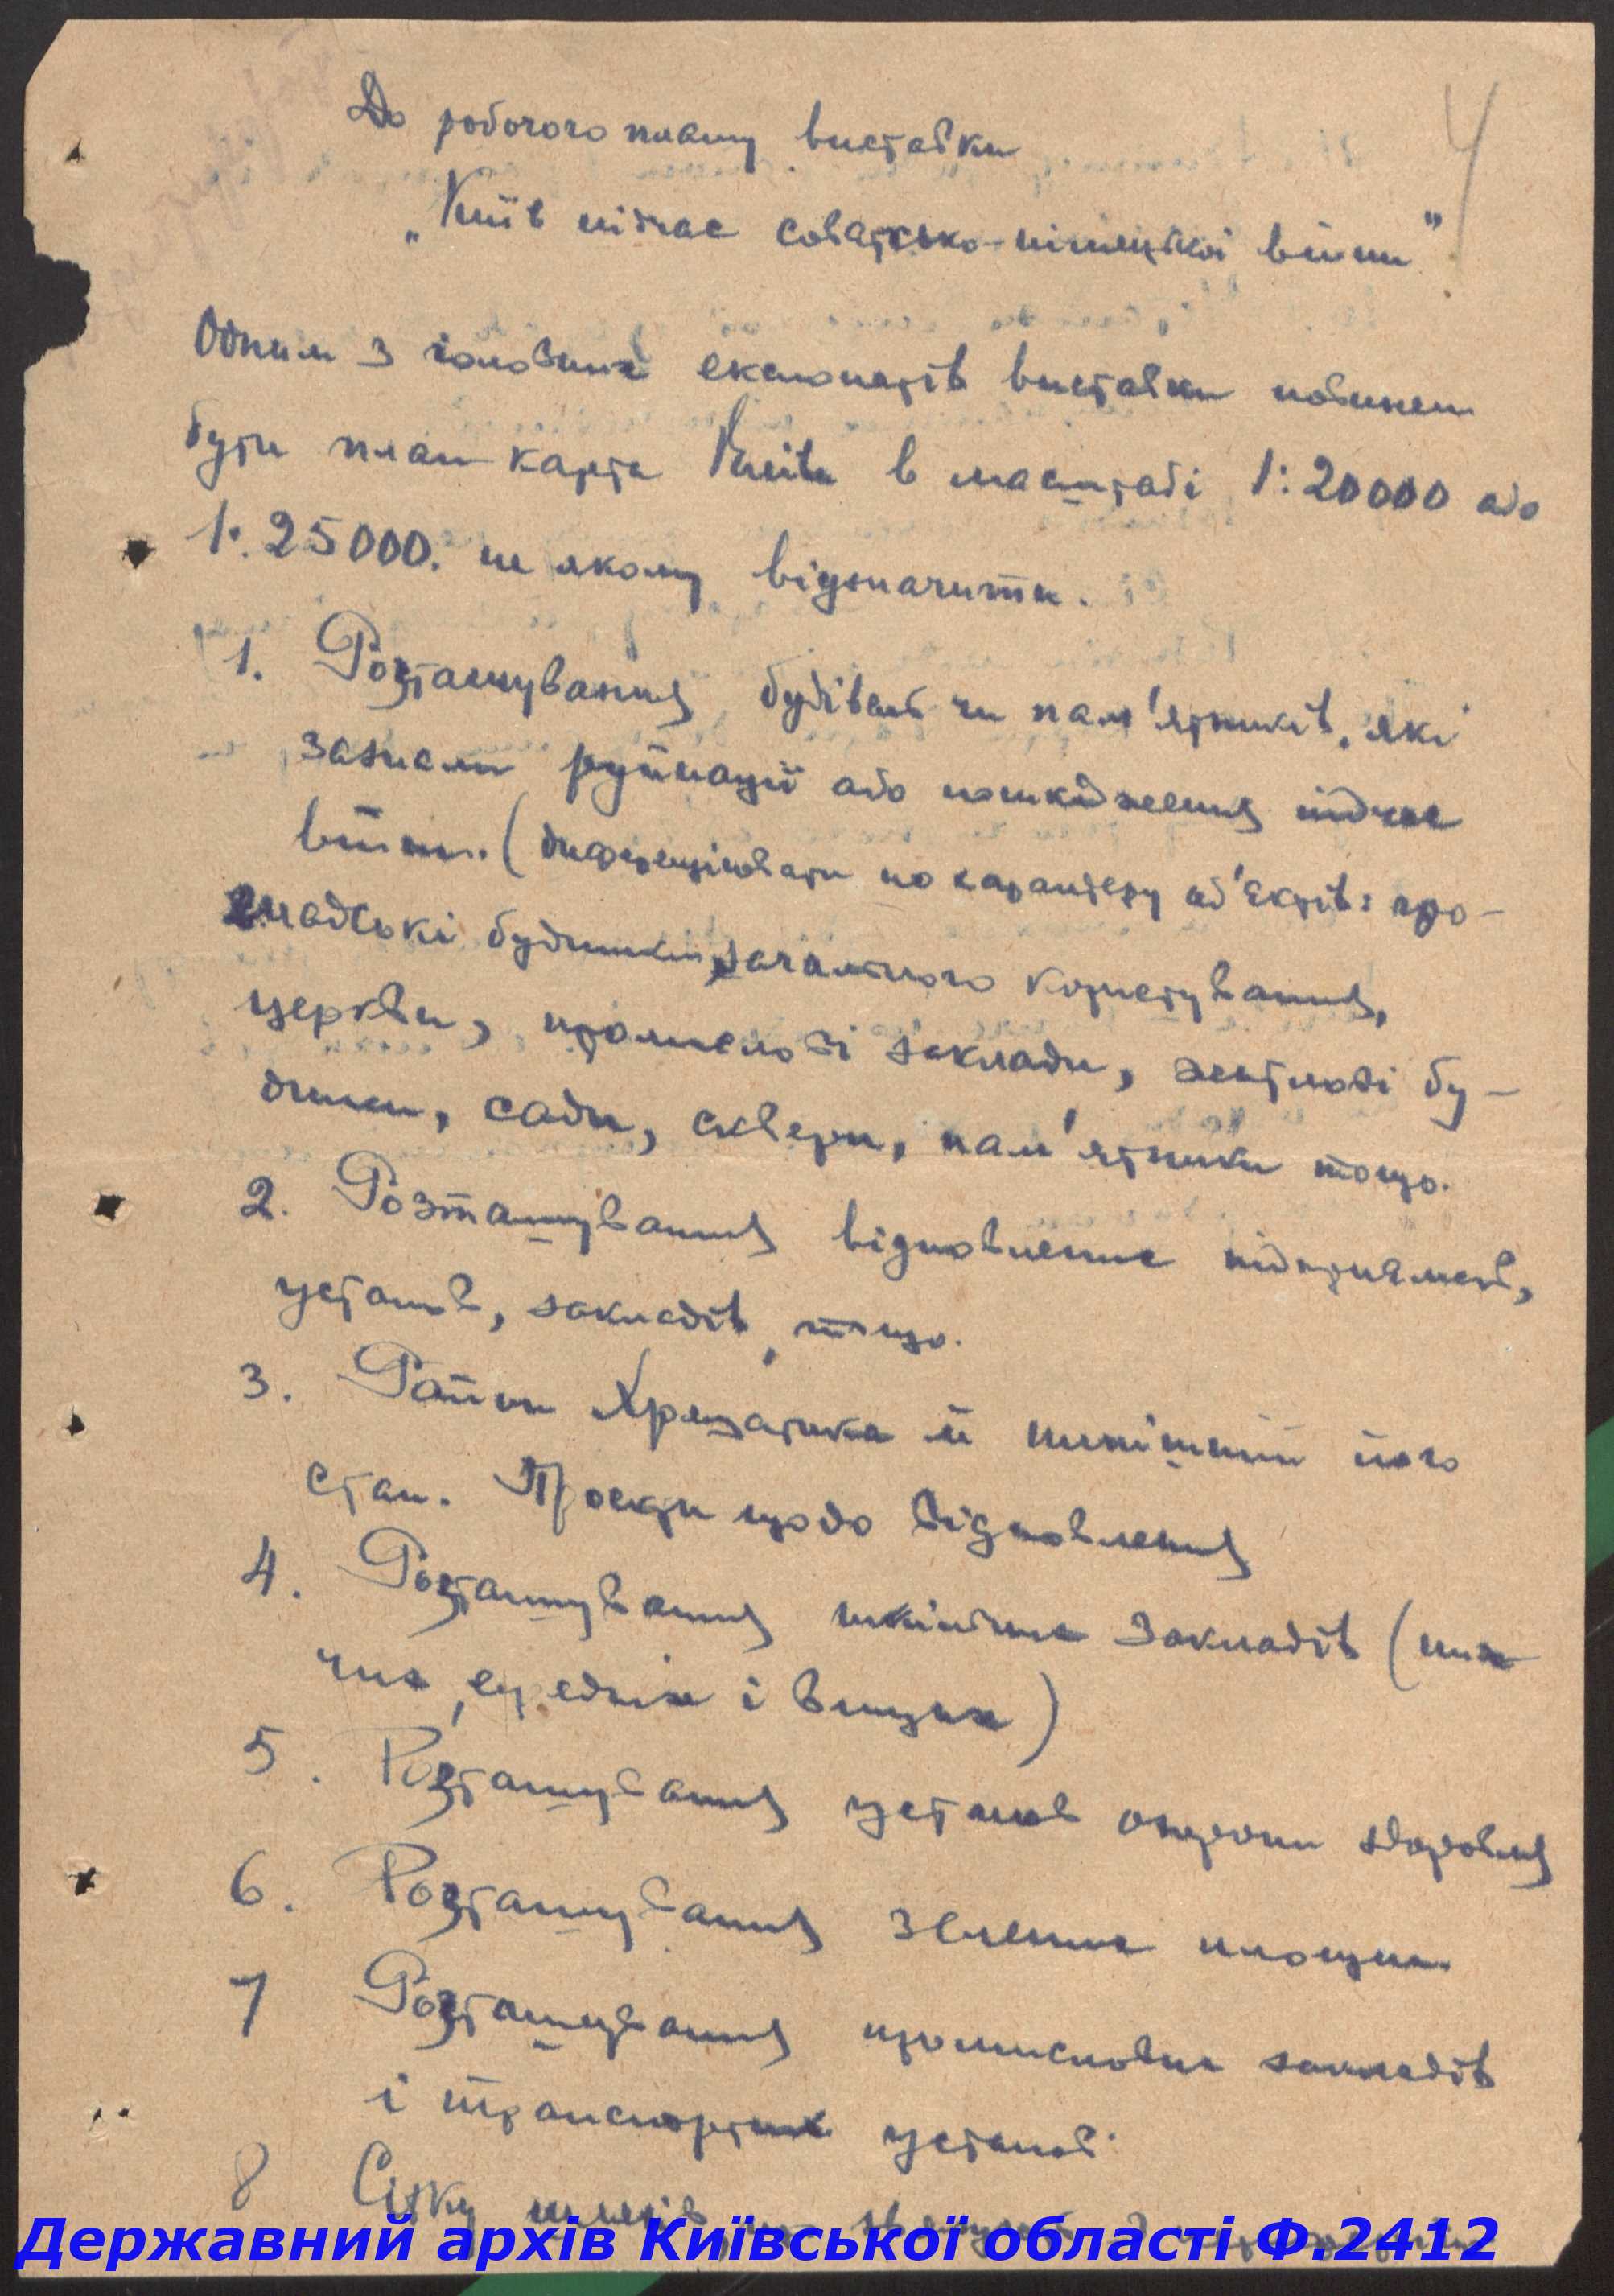 4
До робочого плану виставки
„Київ підчас совєтсько-німецької війни"
Одним з головних експонатів виставки повинен
бути план-карта Києва в масштабі 1:20000 або
1:25000. на якому відзначити.
1. Розташування будівель чи пам'ятників, які
зазнали руйнації або пошкодження підчас
війни. (диференціювати по характеру об'єктів: гро-
мадські будинки загального користування,
церкви, промислові заклади, житлові бу-
динки, сади, сквери, пам'ятники тощо.
2. Розташування відновлених підприємств,
установ, закладів тощо.
3. Район Хрещатика й нинішній його
стан. Проекти щодо відновлення
4. Розташування шкільних закладів (ниж
чих, середніх і вищих)
5. Розташування установ охорони здоровля
6. Розташування зелених площ.
7 Розташування промислових закладів
і транспортних установ.
8 Сітку шляхів
Державний архів Київської області Ф.2412